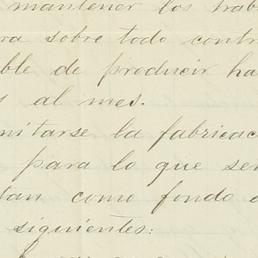 mantener los trab
ra sobre todo contr
ble de producir ha
s al mes.
nitarse la fabricac
para lo que ser
tan como fondo d
siguientes: